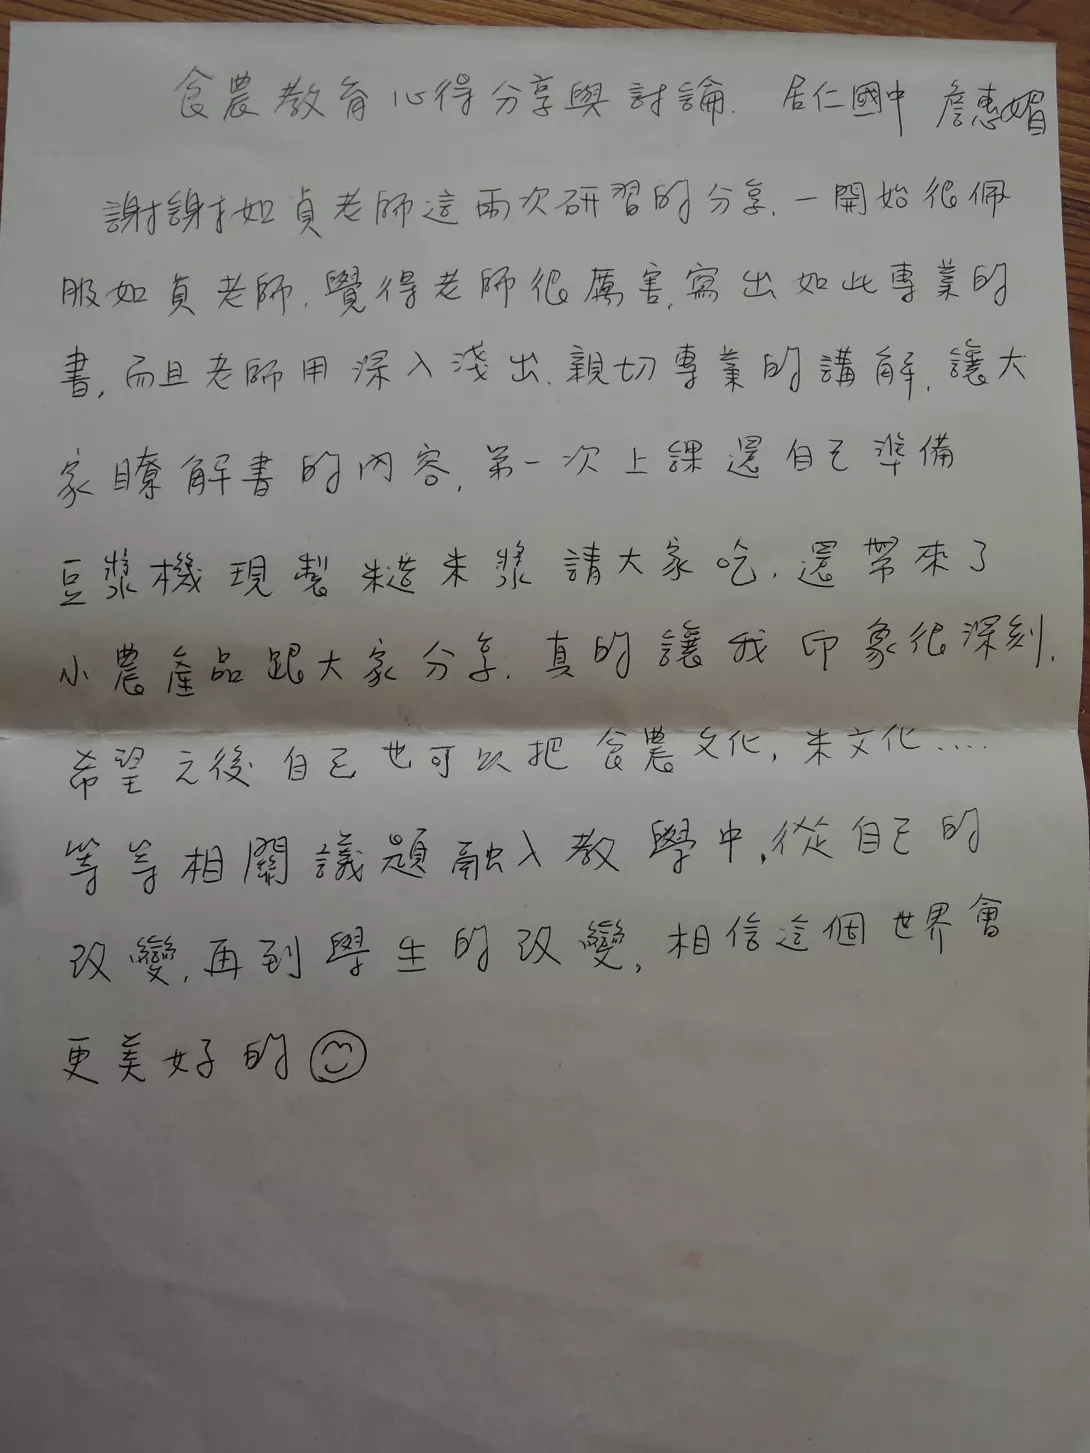 食農教育心得分享與討論. 居仁國中 詹惠媚
謝謝如貞老師這兩次研習的分享. 一開始很佩
服如貞老師. 覺得老師很厲害, 寫出如此專業的
書, 而且老師用深入淺出. 親切專業的講解, 讓大
家瞭解書的內容, 第一次上課還自己準備
豆漿機現製 糙米漿請大家吃, 還帶來了
小農產品跟大家分享. 真的讓我印象很深刻.
希望之後自己也可以把食農文化, 米文化.....
等等相關議題融入教學中, 從自己的
改變, 再到學生的改變, 相信這個世界會
更美好的